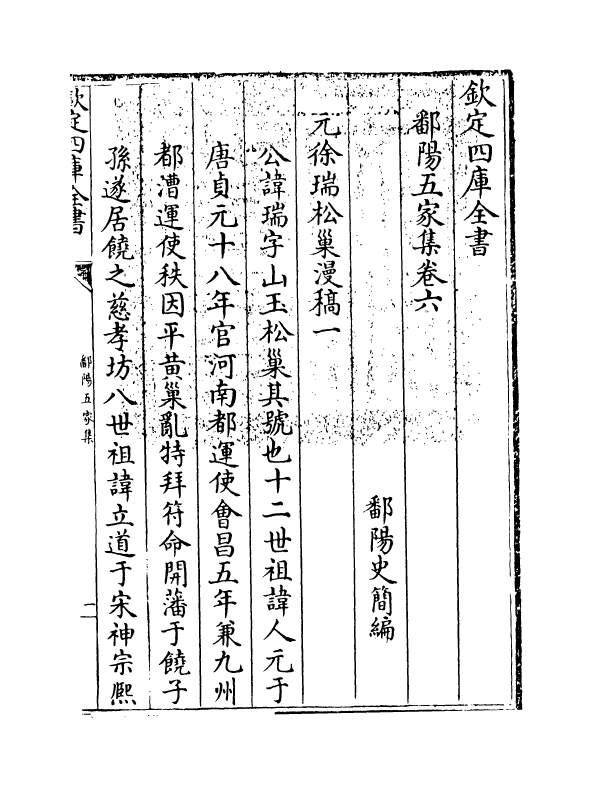 欽定四庫全書
鄱陽五家集卷六
鄱陽史簡編
元徐瑞松巢漫稿一
公諱瑞字山玉松巢其號也十二世祖諱人元于
唐貞元十八年官河南都運使會昌五年兼九州
都漕運使秩因平黃巢亂特拜符命開藩于饒子
孫遂居饒之慈孝坊八世祖諱立道于宋神宗熈
欽定四庫全書
鄱陽五家集
一